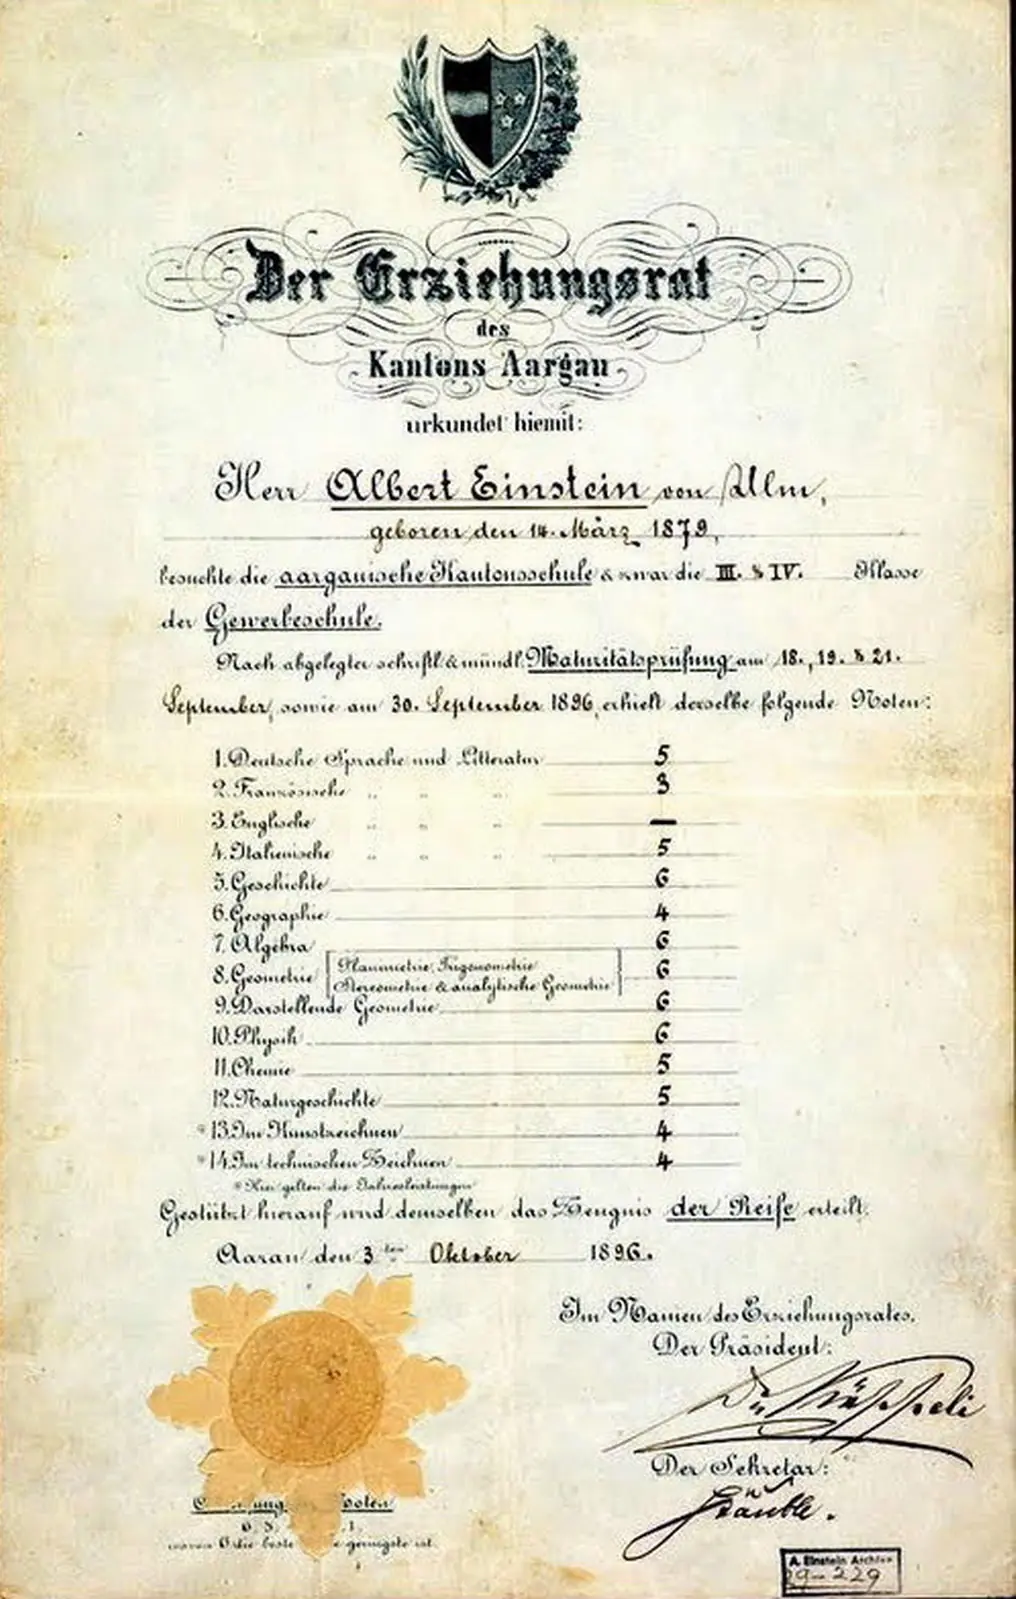 Der Erziehungsrat
des
Kantons Aargau
urkundet hiemit:
Herr Albert Einstein von Ulm,
geboren den 14. März 1879,
besuchte die aargauische Kantonsschule & zwar die III. & IV. Klasse
der Gewerbeschule.
Nach abgelegter schriftl. & mündl. Maturitätsprüfung am 18., 19. & 21.
September, sowie am 30. September 1896, erhielt derselbe folgende Noten:
1. Deutsche Sprache und Litteratur 5
2. Französische " " " 3
3. Englische " " " —
4. Italienische " " " 5
5. Geschichte 6
6. Geographie 4
7. Algebra 6
8. Geometrie [Planimetrie, Trigonometrie 6
Stereometrie & analytische Geometrie]
9. Darstellende Geometrie 6
10. Physik 6
11. Chemie 5
12. Naturgeschichte 5
* 13. Im Kunstzeichnen 4
* 14. Im technischen Zeichnen 4
* Hier gelten die Jahresleistungen
Gestützt hierauf wird demselben das Zeugnis der Reife erteilt.
Aarau den 3ten Oktober 1896.
Im Namen des Erziehungsrates,
Der Präsident:
Dr Käppeli
Der Sekretär:
Stäuble.
Noten
6. 5. 1.
wovon 6 die beste geringste ist.
A. Einstein Archive
29-229